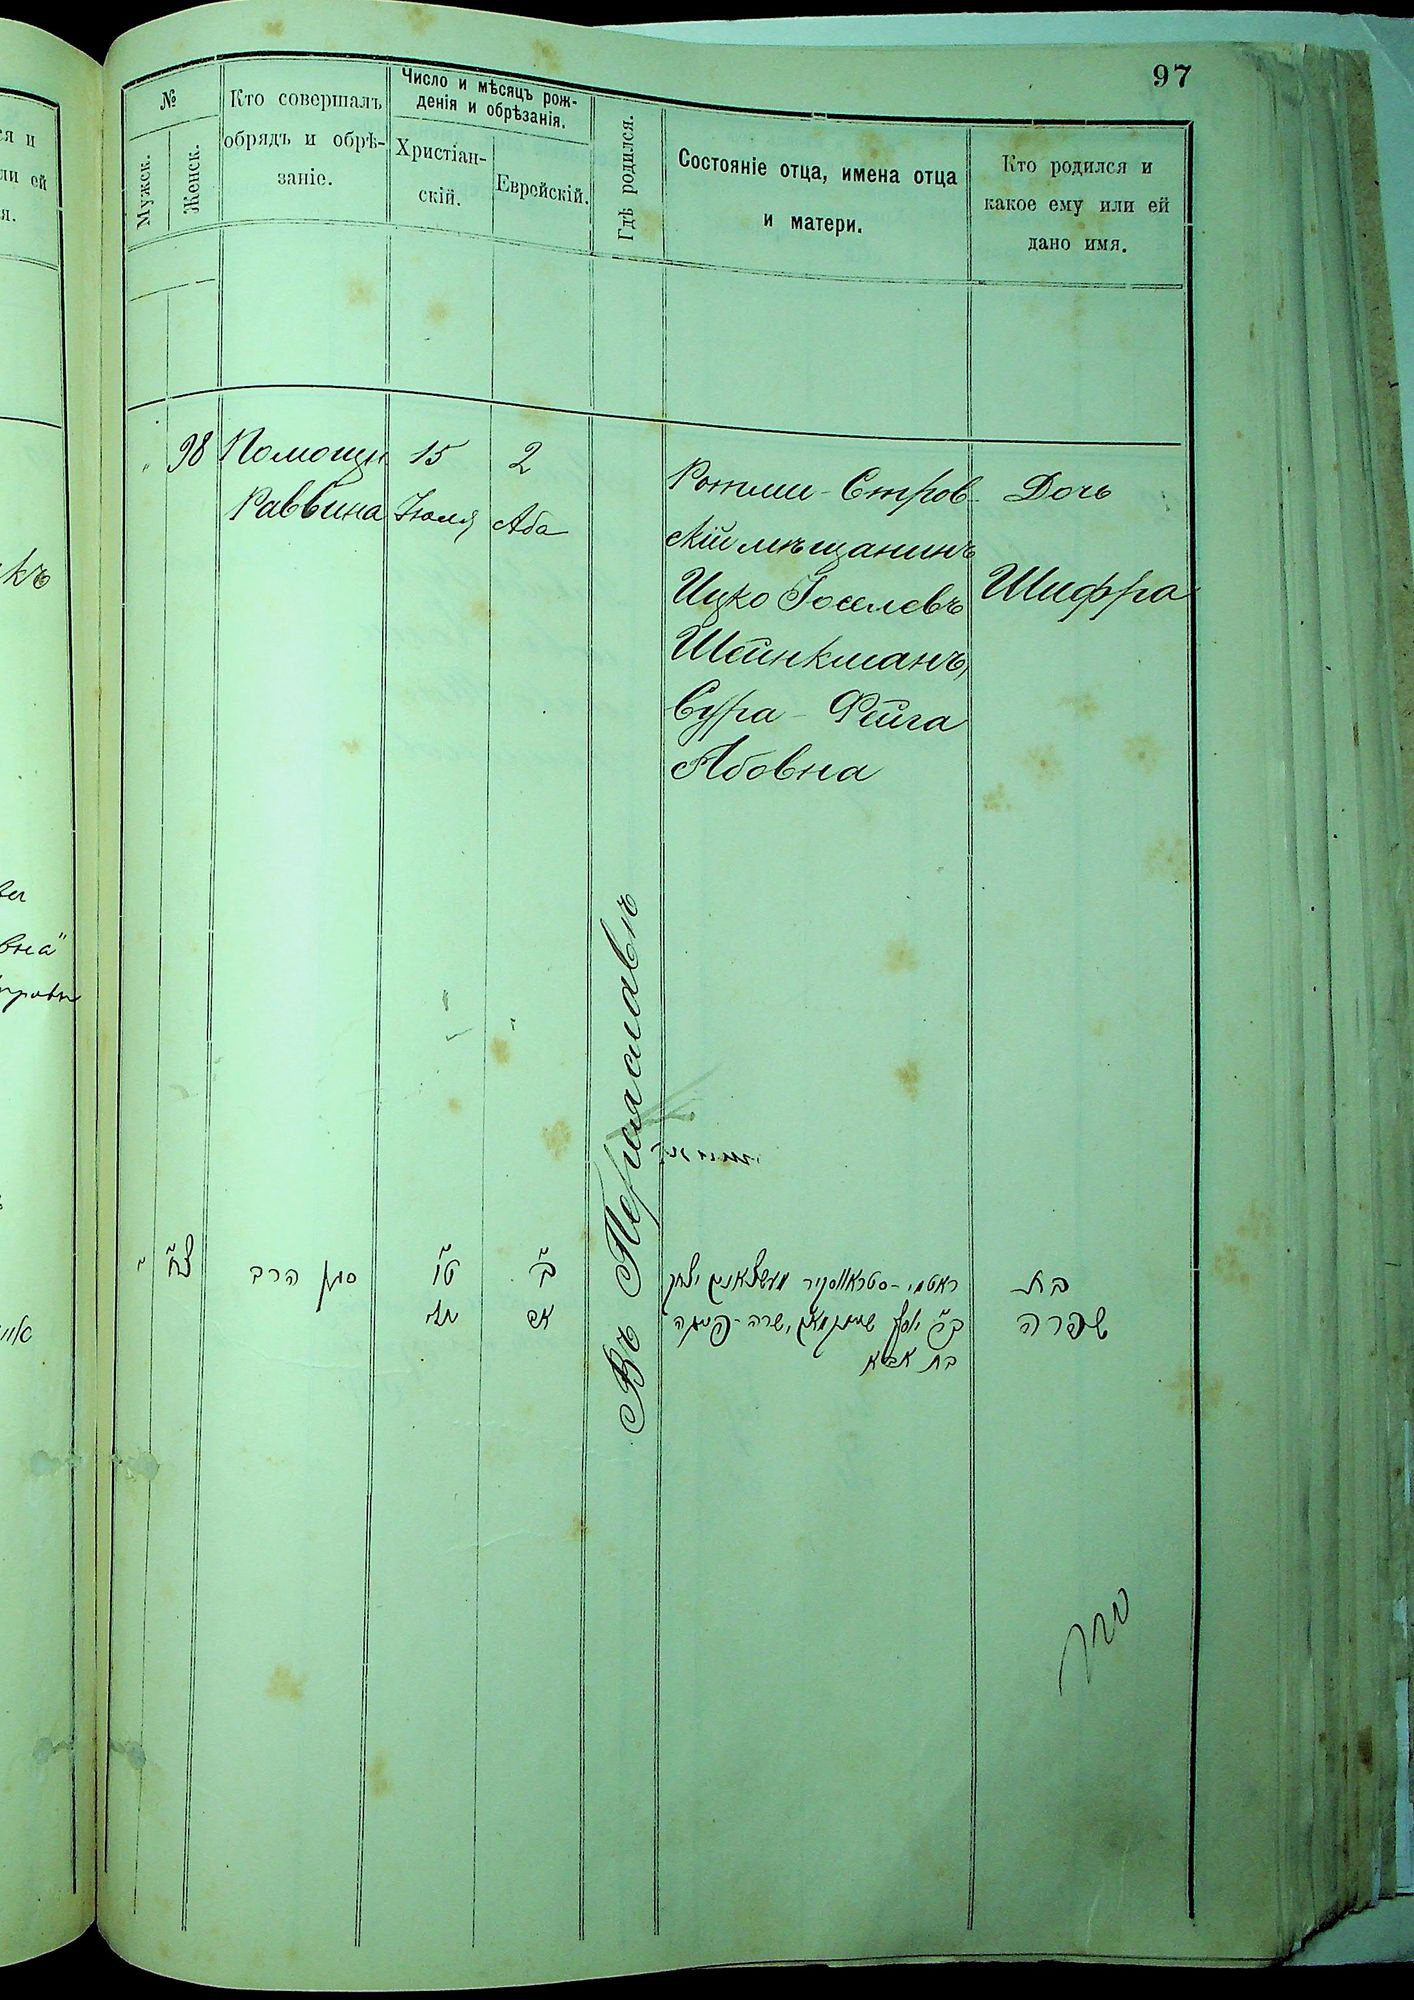 97
№
Мужск.
Женск.
Кто совершалъ
обрядъ и обрѣ-
заніе.
Число и мѣсяцъ рож-
денія и обрѣзанія.
Христіан-
скій.
Еврейскій.
Гдѣ родился.
Состояніе отца, имена отца
и матери.
Кто родился и
какое ему или ей
дано имя.
" 98
Помощн
Раввина
15
Іюля
2
Аба
Въ Переяславѣ
Ротми-Стров-
скій мѣщанинъ
Ицко Іоселевъ
Шейнкманъ,
Сура-Фейга
Абовна
Дочь
Шифра
" צ״ח
סגן הרב
ט״ו
ב׳
אב
ראטמי-סטראווסקיר מעשצאנין יצחק
ב״ר יוסף שיינקמאן, שרה-פייגה
בת אבא
בת
שפרה
ся и
ли ей
я.
къ
вна"